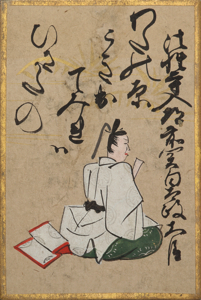 法性寺入道前関白太政大臣
わたの原
こき出
てみれハ
ひさかたの